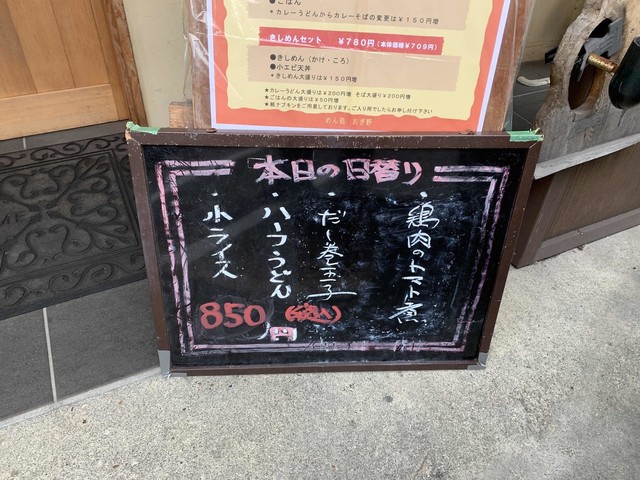 ●ごはん
*カレーうどんからカレーそばの変更は¥150円増
きしめんセット ¥780円(本体価格¥709円)
●きしめん(かけ・ころ)
●小エビ天丼
*きしめん大盛りは¥150円増
★カレーうどん大盛りは¥200円増 そば大盛り¥200円増
★ごはんの大盛りは¥50円増
★紙ナプキンをご用意しております。ご入り用でしたらお申し付け下さい
めん処 おぎ野
本日の日替り
・鶏肉のトマト煮
・だし巻玉子
・ハーフうどん
・小ライス
850円(税込)